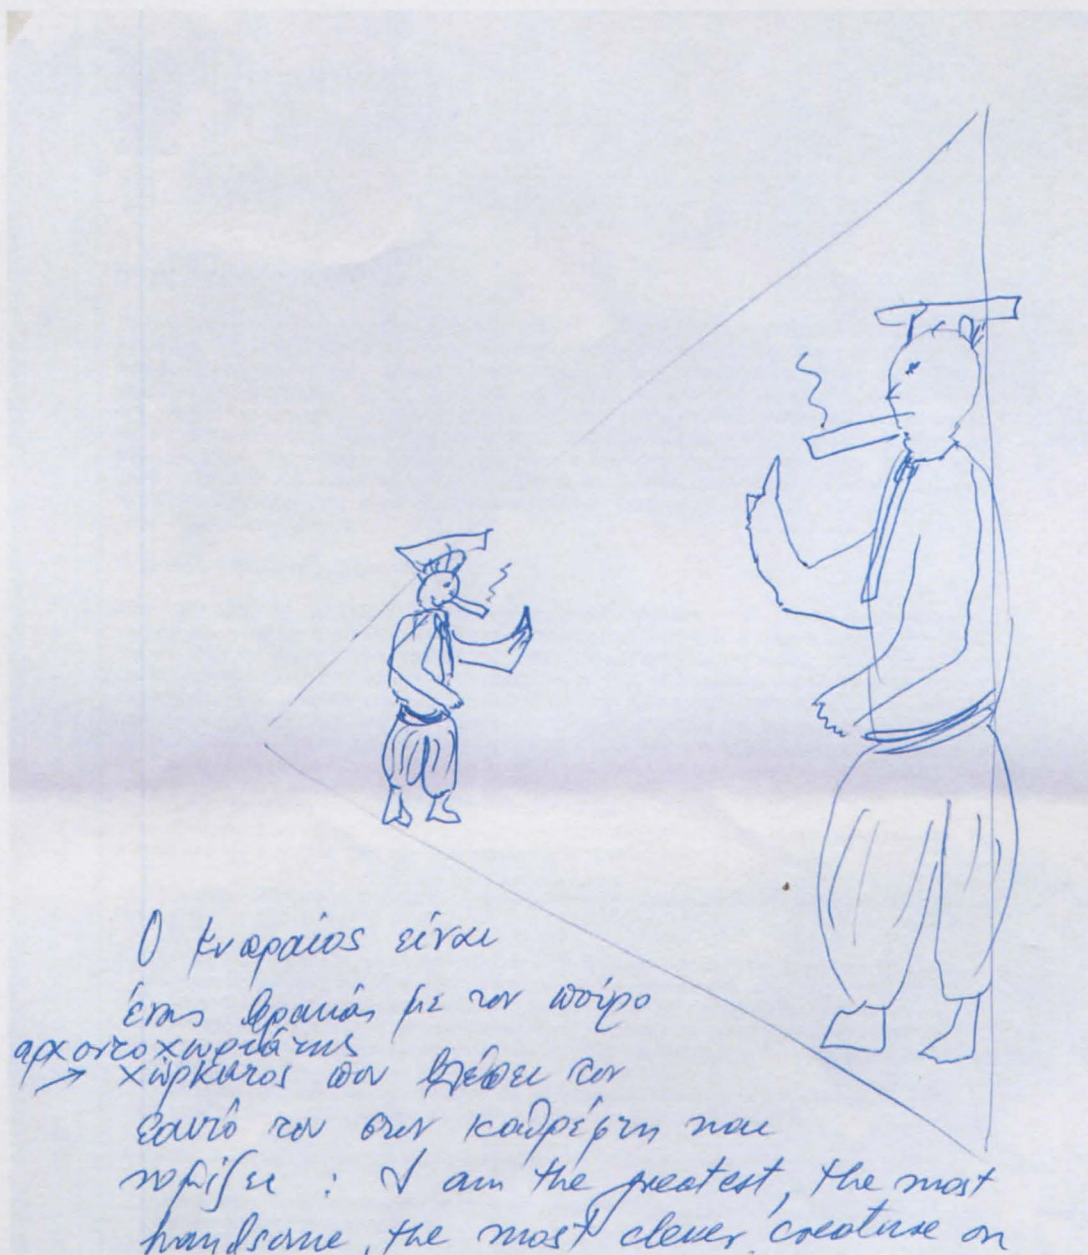 Ο Κυπραίος είναι
ένας βρακάς με τον πούρο
αρχοντοχωριάτης
→ χώρκατος που βλέπει τον
εαυτό του στον καθρέφτη και
νομίζει : I am the greatest, the most
handsome, the most clever creature on